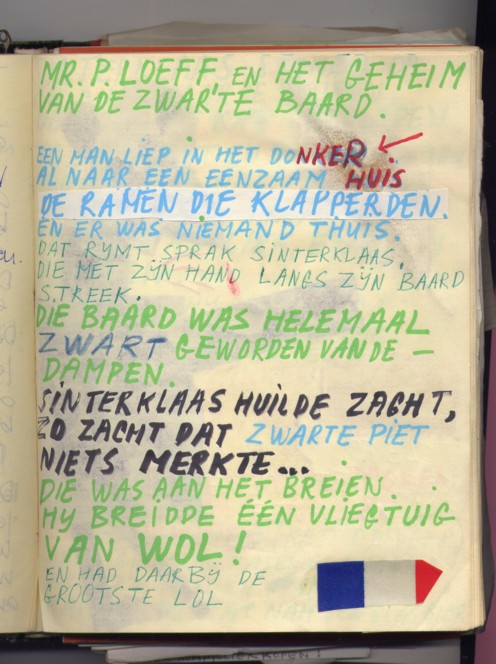 MR. P. LOEFF EN HET GEHEIM
VAN DE ZWARTE BAARD.
EEN MAN LIEP IN HET DONKER
AL NAAR EEN EENZAAM HUIS
DE RAMEN DIE KLAPPERDEN.
EN ER WAS NIEMAND THUIS.
DAT RYMT SPRAK SINTERKLAAS.
DIE MET ZYN HAND LANGS ZYN BAARD
STREEK.
DIE BAARD WAS HELEMAAL
ZWART GEWORDEN VAN DE –
DAMPEN.
SINTERKLAAS HUILDE ZACHT,
ZO ZACHT DAT ZWARTE PIET
NIETS MERKTE...
DIE WAS AAN HET BREIEN.
HY BREIDDE ÉÉN VLIEGTUIG
VAN WOL!
EN HAD DAARBY DE
GROOTSTE LOL